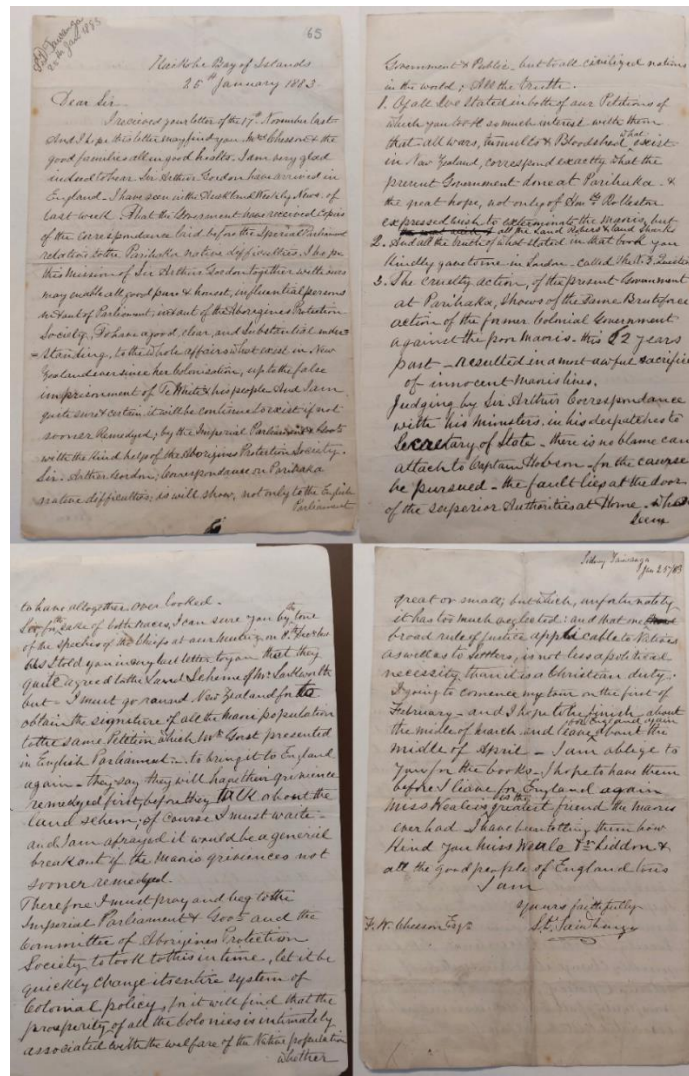 65
S. D. Tawanga
25th Jan 1883
Bay of Islands
25th January 1883
Dear Sir
I received your letter of the 17th November last
And I hope this letter may find you Mrs Chesson & the
good families all in good health. I am very glad
indeed to hear Sir Arthur Gordon have arrived in
England – I have seen in the Auckland Weekly News. of
last week That the Government have received Copies
of the correspondance laid before the Imperial Parliament
relation to the Parihaka native difficulties. I hope
this Mission of Sir Arthur Gordon together with ours
may enable all good pure & honest, influential persons
in & out of Parliament, in & out of the Aborigines Protection
Society, To have a good, clear, and Substantial under
-standing, to the whole affairs what exist in New
Zealand ever since her Colonisation, up to the false
imprisonment of Te Whiti & his people And I am
quite sure & certain it will be continue to exist if not
sooner Remedyed; by the Imperial Parliament & Govt
with the kind help of the Aborigines Protection Society.
Sir. Arthur Gordon, Correspondance on Parihaka
native difficulties; is will show, not only to the English
Parliament
Government & Public, but to all civilized nations
in the world; All the truth.
1. Of all I've stated in both of our Petitions of
which you took so much interest with them
that – all wars, tumults & Bloodshed what exist
in New Zealand, correspond exactly what the
present Government done at Parihaka – &
the great hope, not only of Honble Rolleston
expressed wish to exterminate the Maoris, but
all the Land Jobers & Land Sharks
2. And all the truth of what stated in that book you
kindly gave to me in London – called The N. Z
3. The cruelty action, of the present Government
at Parihaka, shows of the same Brute force
action of the former Colonial Government
against the poor Maoris. this 42 years
past – resulted in a most awful sacrifice
of innocent Maoris lives.
Judging by Sir Arthur Correspondance
with his Ministers. in his despatches to
Secretary of State – there is no blame can
attach to Captain Hobson – for the course
he pursued – the fault lies at the door
of the superior Authorities at Home – who
seem
to have altogether over looked.
for the sake of both races, I can sure you by the tone
of the Speeches of the Chiefs at our meeting on
I told you in my last letter to you that they
quite agreed to the Land Scheme of Mr
but – I must go round New Zealand for to
obtain the signature of all the Maori population
to the same Petition which Mr Gorst presented
in English Parliament – to bring it to England
again – they say they will have their grievence
remedyed first, before they talk about the
land schem, of course I must waite –
and I am afrayed it would be a generiel
break out if the Maoris grievences not
sooner remedyed.
Therefore I must pray and beg to the
Imperial Parliament & Govt and the
Committee of Aborigines Protection
Society to look to this in time, let it be
quickly change its entire system of
Colonial policy, for it will find that the
prosperity of all the Colonies is intimately
associated with the welfare of the Native population
whether
Sidney Tawanga
Jan 25/83
great or small; but which, unfortunately
it has too much neglected: and that one
broad rule of justice applicable to Natives
as well as to Settlers, is not less a political
necessity, than it is a Christian duty.
I going to comence my tour on the first of
February – and I hope to be finish about
the middle of March. and leave for England again about the
middle of April – I am oblege to
you for the books – I hope to have them
before I leave for England again
Miss Weale is the greatest friend the Maoris
ever had. I have been telling them how
kind you Miss Weale Dr Liddon &
all the good people of England to us
I am
Yours faithfully
F. W. Chesson Esqr